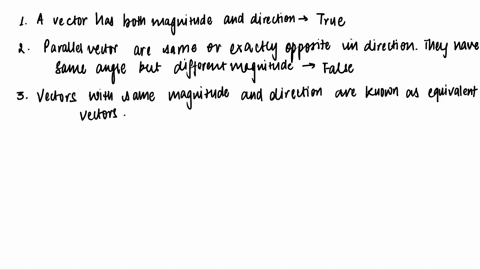 1. A vector has both magnitude and direction → True
2. Parallel vector are same or exactly opposite in direction. They have
same angle but different magnitude → False
3. Vectors with same magnitude and direction are known as equivalent
vectors.